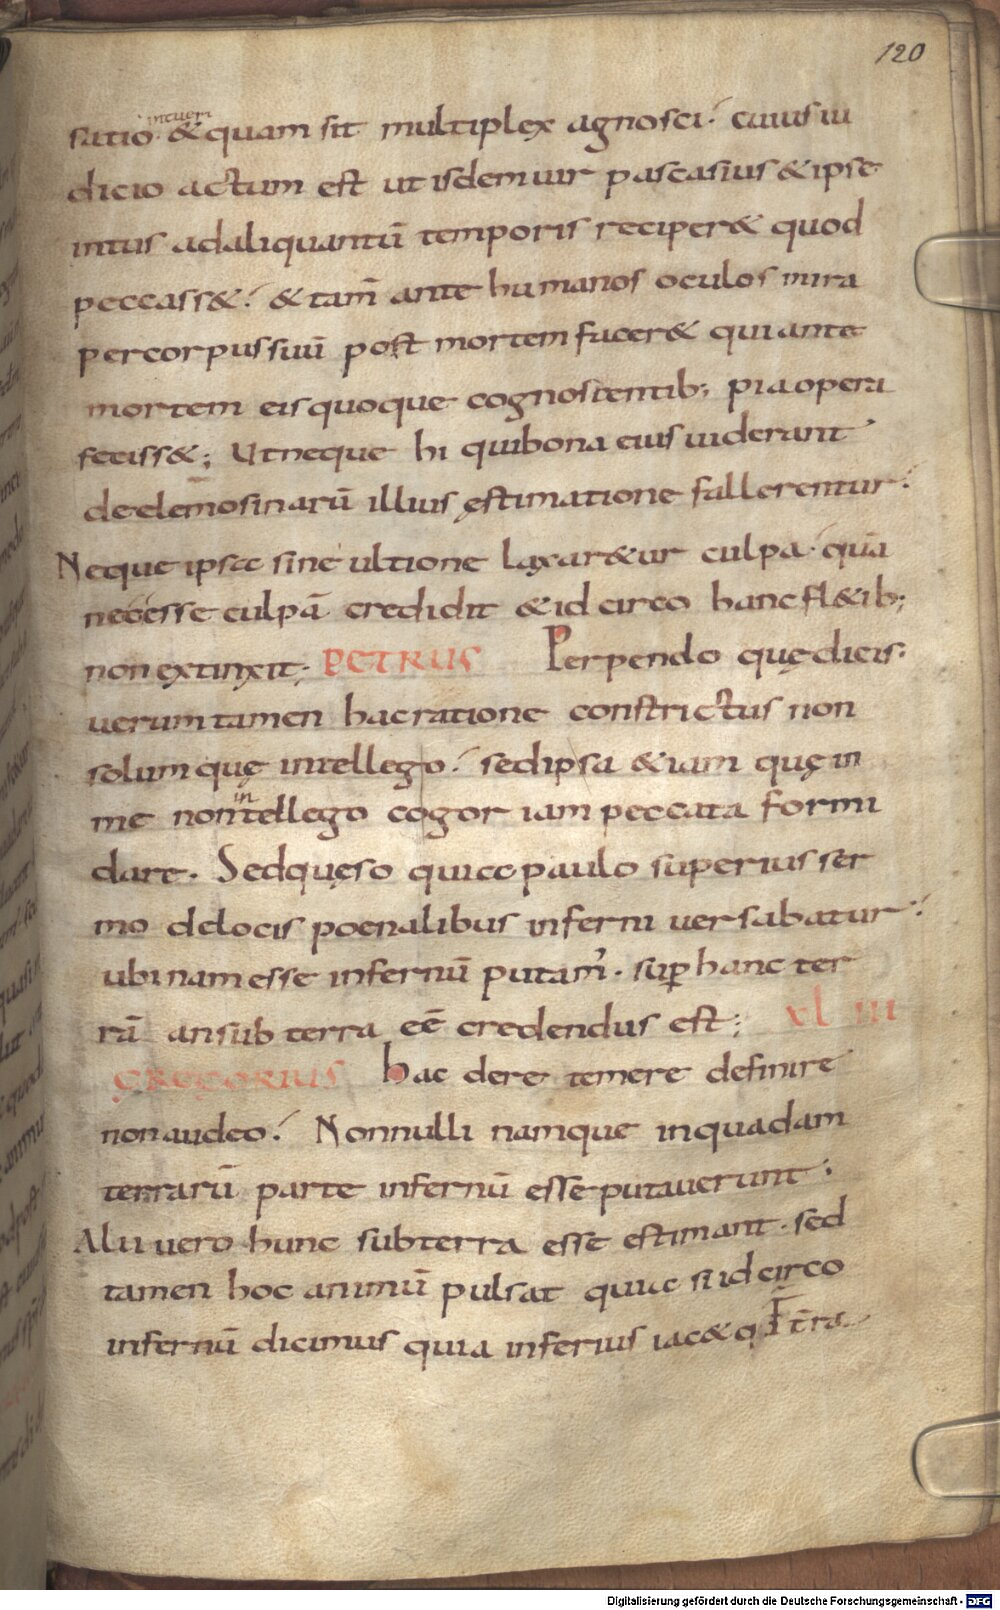 120
intueri
satio. & quam sit multiplex agnosci. cuius iu
dicio actum est ut isdem uir pascasius & ipse
intus ad aliquantū temporis reciper& quod
peccass&. & tam̄ ante humanos oculos mira
per corpus suū post mortem facer& qui ante
mortem eis quoque cognoscentib; pia opera
feciss&; Ut neque hi qui bona eius uiderant
de elemosinarū illius ęstimatione fallerentur.
Neque ipse sine ultione laxar&ur culpa. quā
nec esse culpā credidit & idcirco hanc fl&ib;
non extinxit; PETRUS Perpendo quę dicis.
uerum tamen hac ratione constrictus non
solum quę intellego. sed ipsa &iam quę in
in
me non tellego cogor iam peccata formi
dare. Sed quęso quia paulo superius ser
mo de locis poenalibus inferni uersabatur.
ubinam esse infernū putam'. sup hanc ter
rā an sub terra eē credendus est; XLIII
GREGORIUS hac de re temere definire
non audeo. Nonnulli namque in quadam
terrarū parte infernū esse putauerunt.
Alii uero hunc sub terra esse estimant. sed
tamen hoc animū pulsat quia si idcirco
infernū dicimus quia inferius iac& q̄ īt̄ra
Digitalisierung gefördert durch die Deutsche Forschungsgemeinschaft - DFG